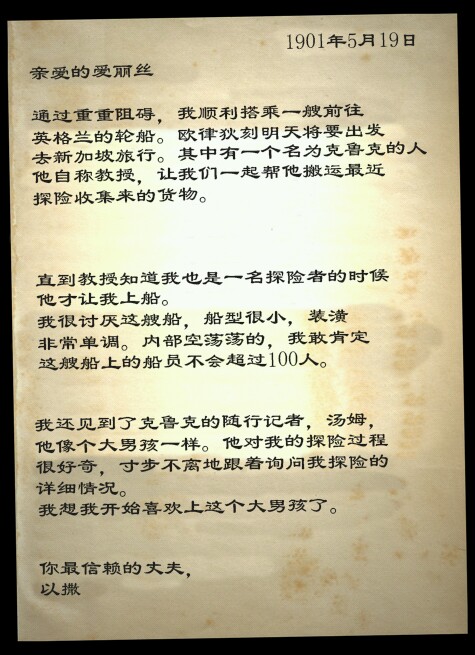 1901年5月19日
亲爱的爱丽丝
通过重重阻碍，我顺利搭乘一艘前往
英格兰的轮船。欧律狄刻明天将要出发
去新加坡旅行。其中有一个名为克鲁克的人
他自称教授，让我们一起帮他搬运最近
探险收集来的货物。
直到教授知道我也是一名探险者的时候
他才让我上船。
我很讨厌这艘船，船型很小，装潢
非常单调。内部空荡荡的，我敢肯定
这艘船上的船员不会超过100人。
我还见到了克鲁克的随行记者，汤姆，
他像个大男孩一样。他对我的探险过程
很好奇，寸步不离地跟着询问我探险的
详细情况。
我想我开始喜欢上这个大男孩了。
你最信赖的丈夫，
以撒